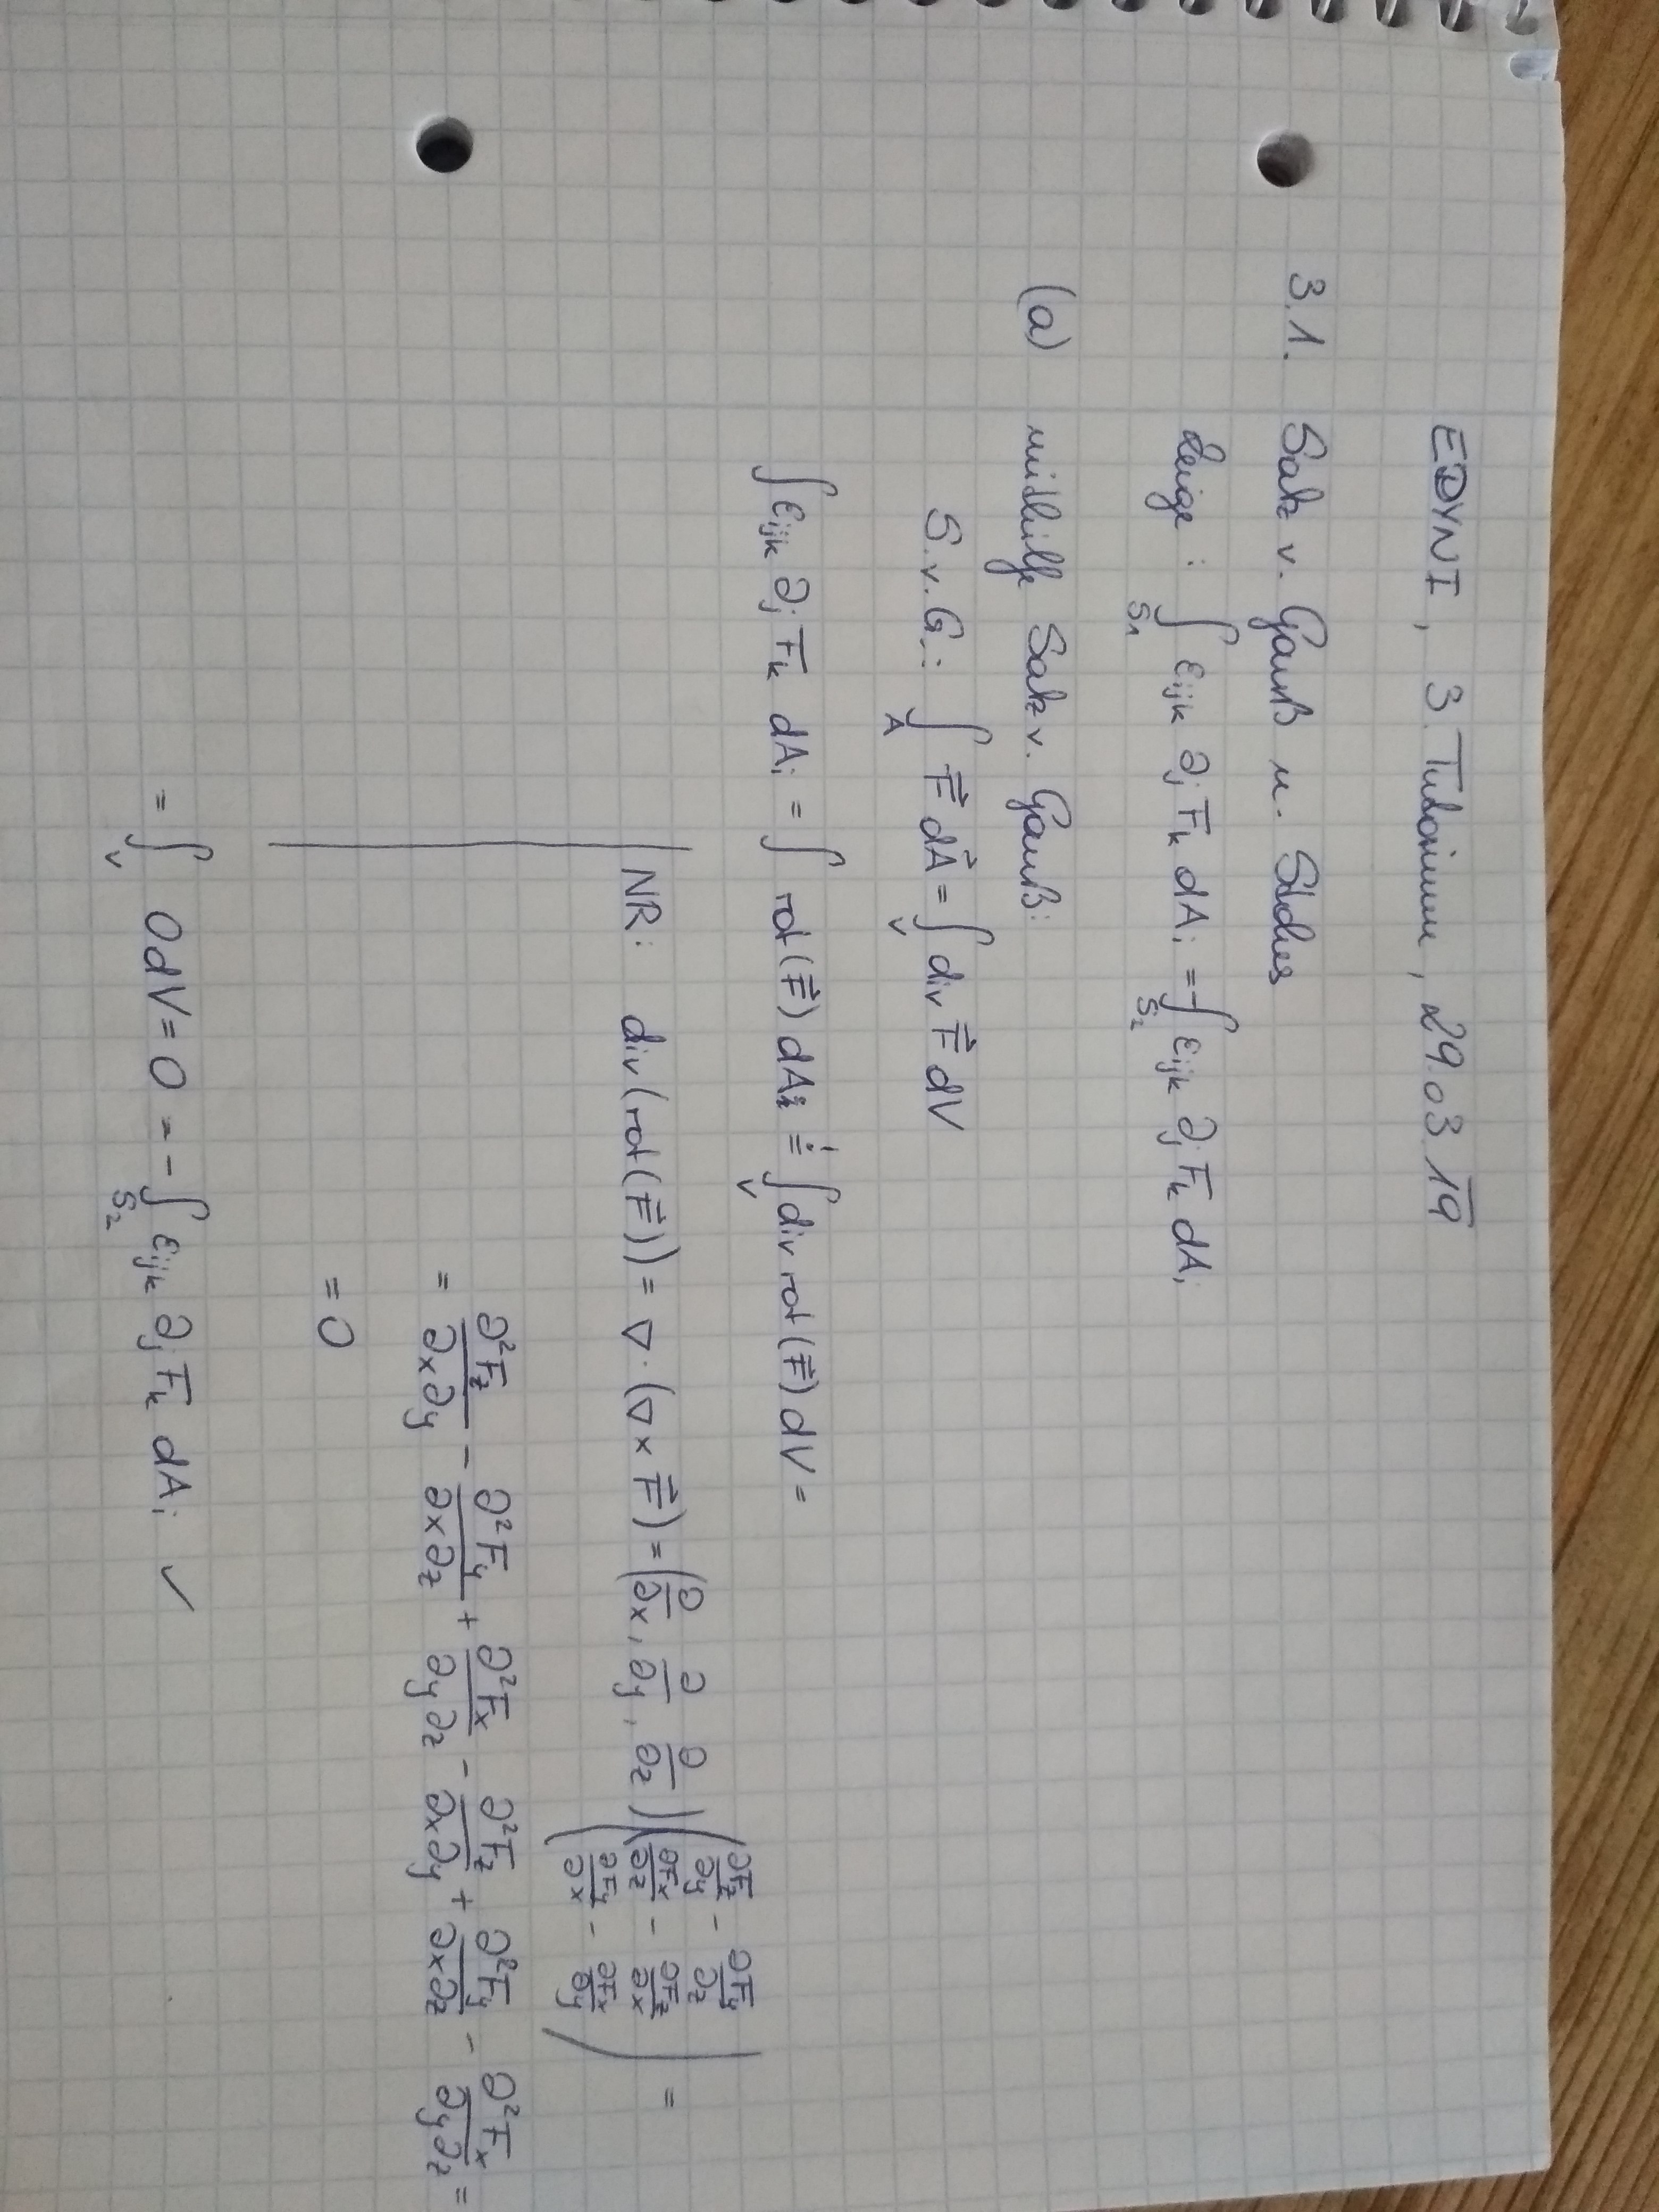 EDYN I, 3. Tutorium, 29.03.19
3.1. Satz v. Gauß u. Stokes
Zeige: ∫_{S₁} ε_{ijk} ∂_j F_k dA_i = -∫_{S₂} ε_{ijk} ∂_j F_k dA_i
(a) mithilfe Satz v. Gauß:
S.v.G.: ∫_A F⃗ dA⃗ = ∫_V div F⃗ dV
∫ ε_{ijk} ∂_j F_k dA_i = ∫ rot(F⃗) dA_i =! ∫_V div rot(F⃗) dV =
NR: div(rot(F⃗)) = ∇·(∇×F⃗) = (∂/∂x, ∂/∂y, ∂/∂z) (∂F_z/∂y - ∂F_y/∂z; ∂F_x/∂z - ∂F_z/∂x; ∂F_y/∂x - ∂F_x/∂y) =
= ∂²F_z/∂x∂y - ∂²F_y/∂x∂z + ∂²F_x/∂y∂z - ∂²F_z/∂x∂y + ∂²F_y/∂x∂z - ∂²F_x/∂y∂z =
= 0
= ∫_V 0dV = 0 = -∫_{S₂} ε_{ijk} ∂_j F_k dA_i ✓